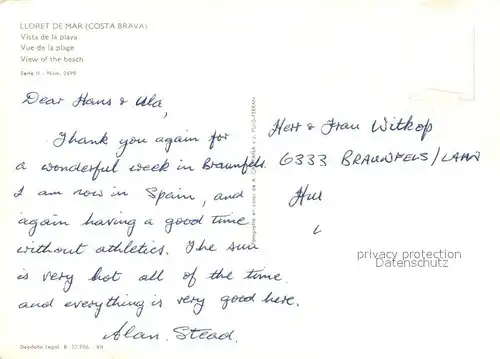 LLORET DE MAR (COSTA BRAVA)
Vista de la playa
Vue de la plage
View of the beach
Serie II - Núm. 2699
Dear Hans & Ula,
Thank you again for
a wonderful week in Braunfels
I am now in Spain, and
again having a good time
without athletics. The sun
is very hot all of the time
and everything is very good here.
Alan Stead.
Herr & Frau Witkop
6333 BRAUNFELS/LAHN
privacy protection
Datenschutz
Depósito Legal B